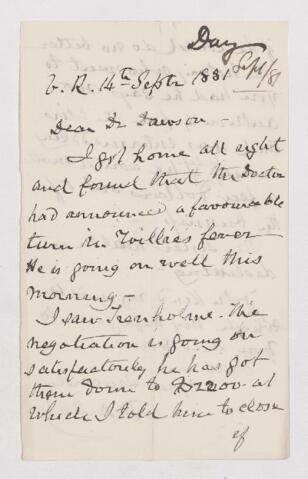 Day
Sept/81
V.R. 14th Septr 1881
Dear Dr Dawson -
I got home all right
and found that the Doctor
had announced a favourable
turn in Willie's fever -
He is going on well this
morning -
I saw Trenholme. The
negotiation is going on
satisfactorily, he has got
them down to $2200. at
which I told him to close
if